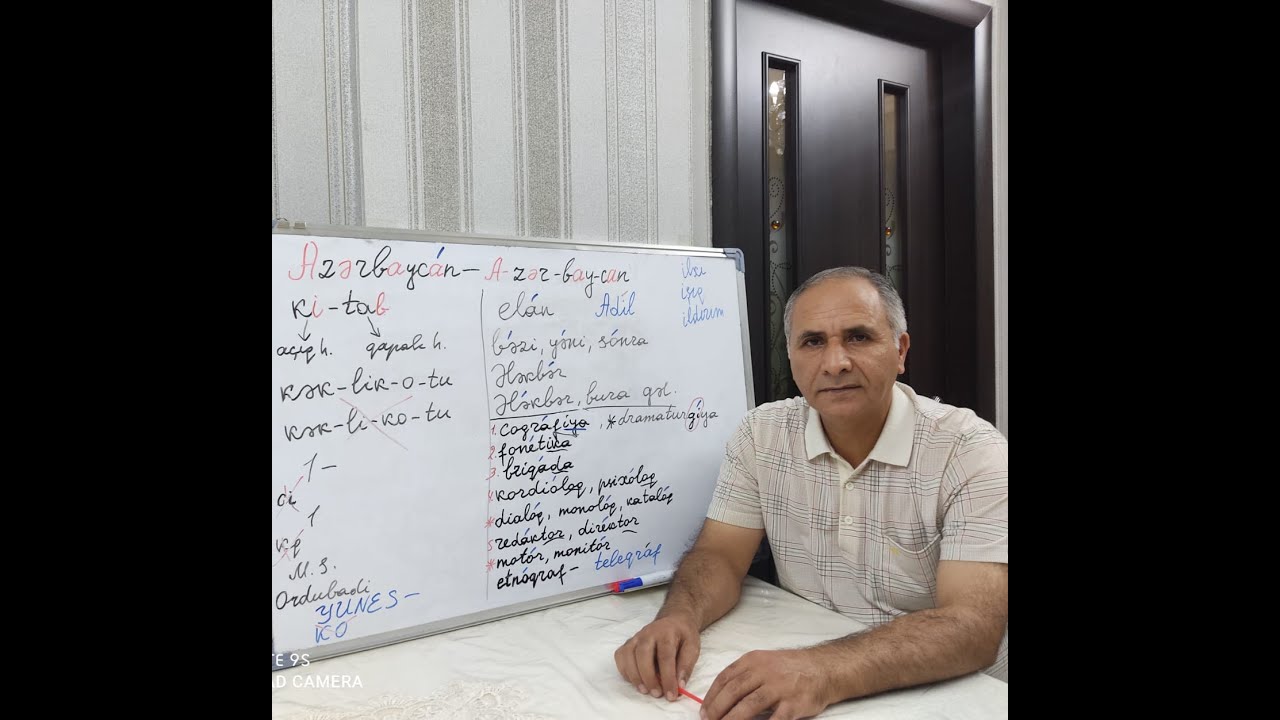 Azərbaycán – A-zər-bay-can
ki-tab
açıq h. qapalı h.
kək-lik-o-tu
kək-li-ko-tu
1-
ci
1
ki
M.S.
Ordubadi
YUNES-
KO
elán Adíl
bə́zi, yə́ni, sónra
Ələkbə́r
Ə́ləkbər, bura gəl.
ilxı
işıq
ildırım
1. cográfiya, *dramaturgíya
2. fonétika
3. brigáda
4. kardióloq, psixóloq
*dialóq, monolóq, katalóq
5 redáktor, diréktor
*motór, monitór
etnóqraf – teleqráf
E 9S
AD CAMERA